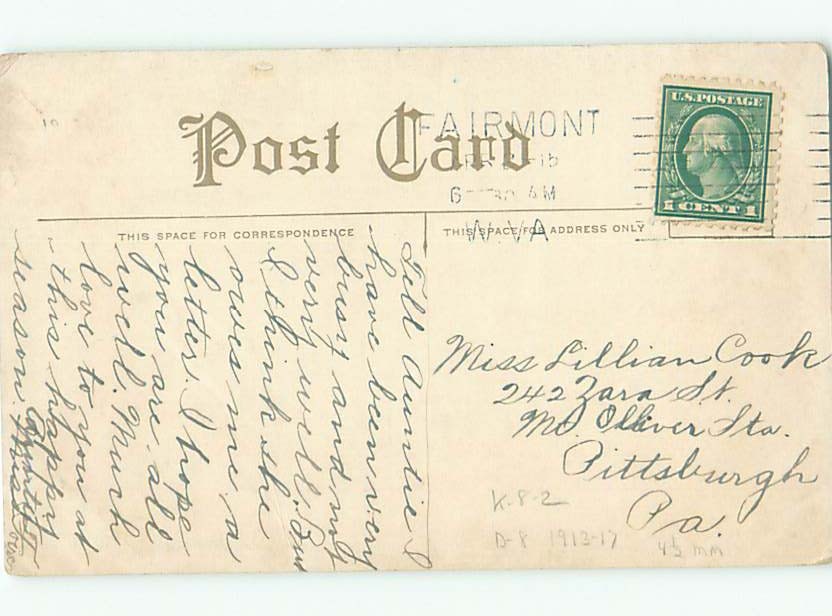 Post Card
FAIRMONT
15
6 30 AM
W. VA
U.S. POSTAGE
1 CENT 1
THIS SPACE FOR CORRESPONDENCE
THIS SPACE FOR ADDRESS ONLY
Tell Auntie I
have been very
busy and not
very well. But
I think she
owes me a
letter. I hope
you are all
well. Much
love to you at
this happy
season.
Miss Lillian Cook
242 Zara St.
Mt. Oliver Sta.
Pittsburgh
Pa.
K-8-2
D-8 1913-17 4½ mm
10